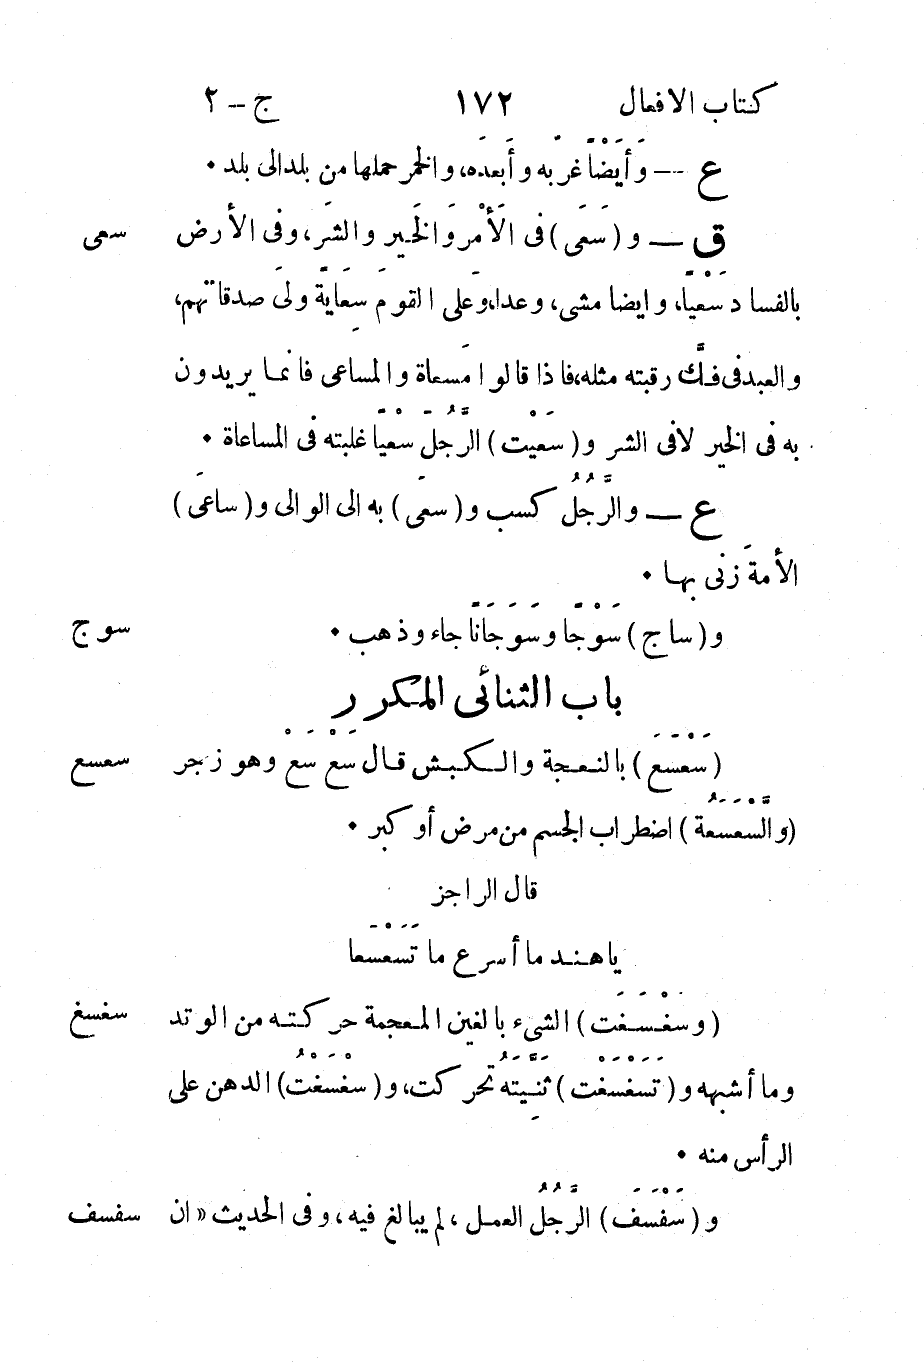 كتاب الافعال ١٧٢ ج – ٢
ع -– وَأَيْضًا غرّبه وأَبعدَه، والخمر حملها من بلد الى بلد •
ق — و (سَعَى) فى الأَمْرِ وَالخَير والشَر، وفى الأرض سعى
بالفساد سَعْيًا، وايضا مشى، وعدا، وعلَى القومِ سِعَايَةً ولىَ صدقاتهم،
والعبد فى فكّ رقبته مثله، فاذا قالوا مَسعاة والمساعى فانما يريدون
به فى الخير لافى الشر و (سَعَيْت) الرَّجُلَ سَعْيًا غلبته فى المساعاة •
ع — والرَّجُلُ كسب و (سعَى) به الى الوالى و (ساعَى)
الأمةَ زنى بها •
و (ساج) سَوْجًا وسَوَجَانًا جاء وذهب • سوج
باب الثنائى المكرر
(سَعْسَعَ) بالنعجة والكبش قال سَعْ سَعْ وهو زجر سعسع
(والسَّعْسَعَةُ) اضطراب الجسم من مرض أو كبر •
قال الراجز
ياهند ما أسرع ما تَسَعْسَعا
(وسَغْسَغَت) الشىء بالغين المعجمة حركته من الوتد سغسغ
وما أشبهه و (تَسَغْسَغَت) ثَنِيَّتَهُ تحركت، و (سَغْسَغْتُ) الدهن على
الرأس منه •
و (سَفْسَفَ) الرَّجُلُ العمل، لم يبالغ فيه، وفى الحديث « ان سفسف